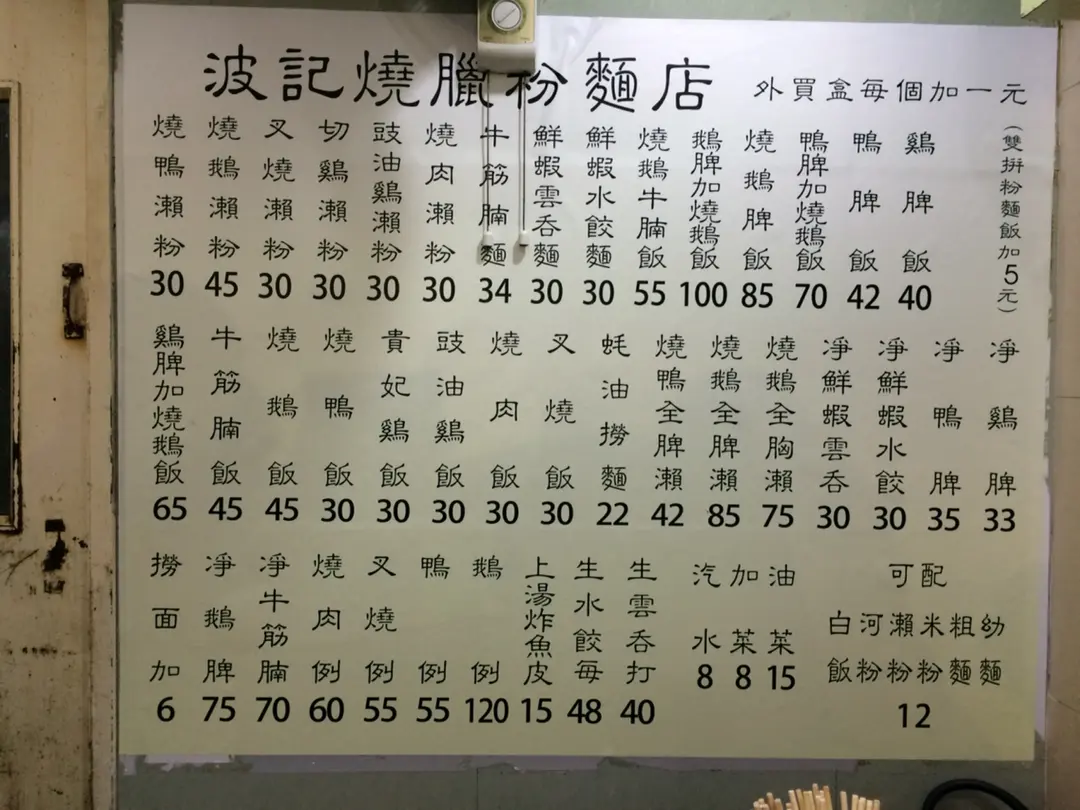 波記燒臘粉麵店
外買盒每個加一元
（雙拼粉麵飯加5元）
燒鴨瀨粉 30
燒鵝瀨粉 45
叉燒瀨粉 30
切鷄瀨粉 30
豉油鷄瀨粉 30
燒肉瀨粉 30
牛筋腩麵 34
鮮蝦雲吞麵 30
鮮蝦水餃麵 30
燒鵝牛腩飯 55
鵝脾加燒鵝飯 100
燒鵝脾飯 85
鴨脾加燒鵝飯 70
鴨脾飯 42
鷄脾飯 40
鷄脾加燒鵝飯 65
牛筋腩飯 45
燒鵝飯 45
燒鴨飯 30
貴妃鷄飯 30
豉油鷄飯 30
燒肉飯 30
叉燒飯 30
蚝油撈麵 22
燒鴨全脾瀨 42
燒鵝全脾瀨 85
燒鵝全胸瀨 75
淨鮮蝦雲吞 30
淨鮮蝦水餃 30
淨鴨脾 35
淨鷄脾 33
撈面加 6
淨鵝脾 75
淨牛筋腩 70
燒肉例 60
叉燒例 55
鴨例 55
鵝例 120
上湯炸魚皮 15
生水餃每 48
生雲吞打 40
汽水 8
加菜 8
油菜 15
可配
白飯 河粉 瀨粉 米粉 粗麵 幼麵
12